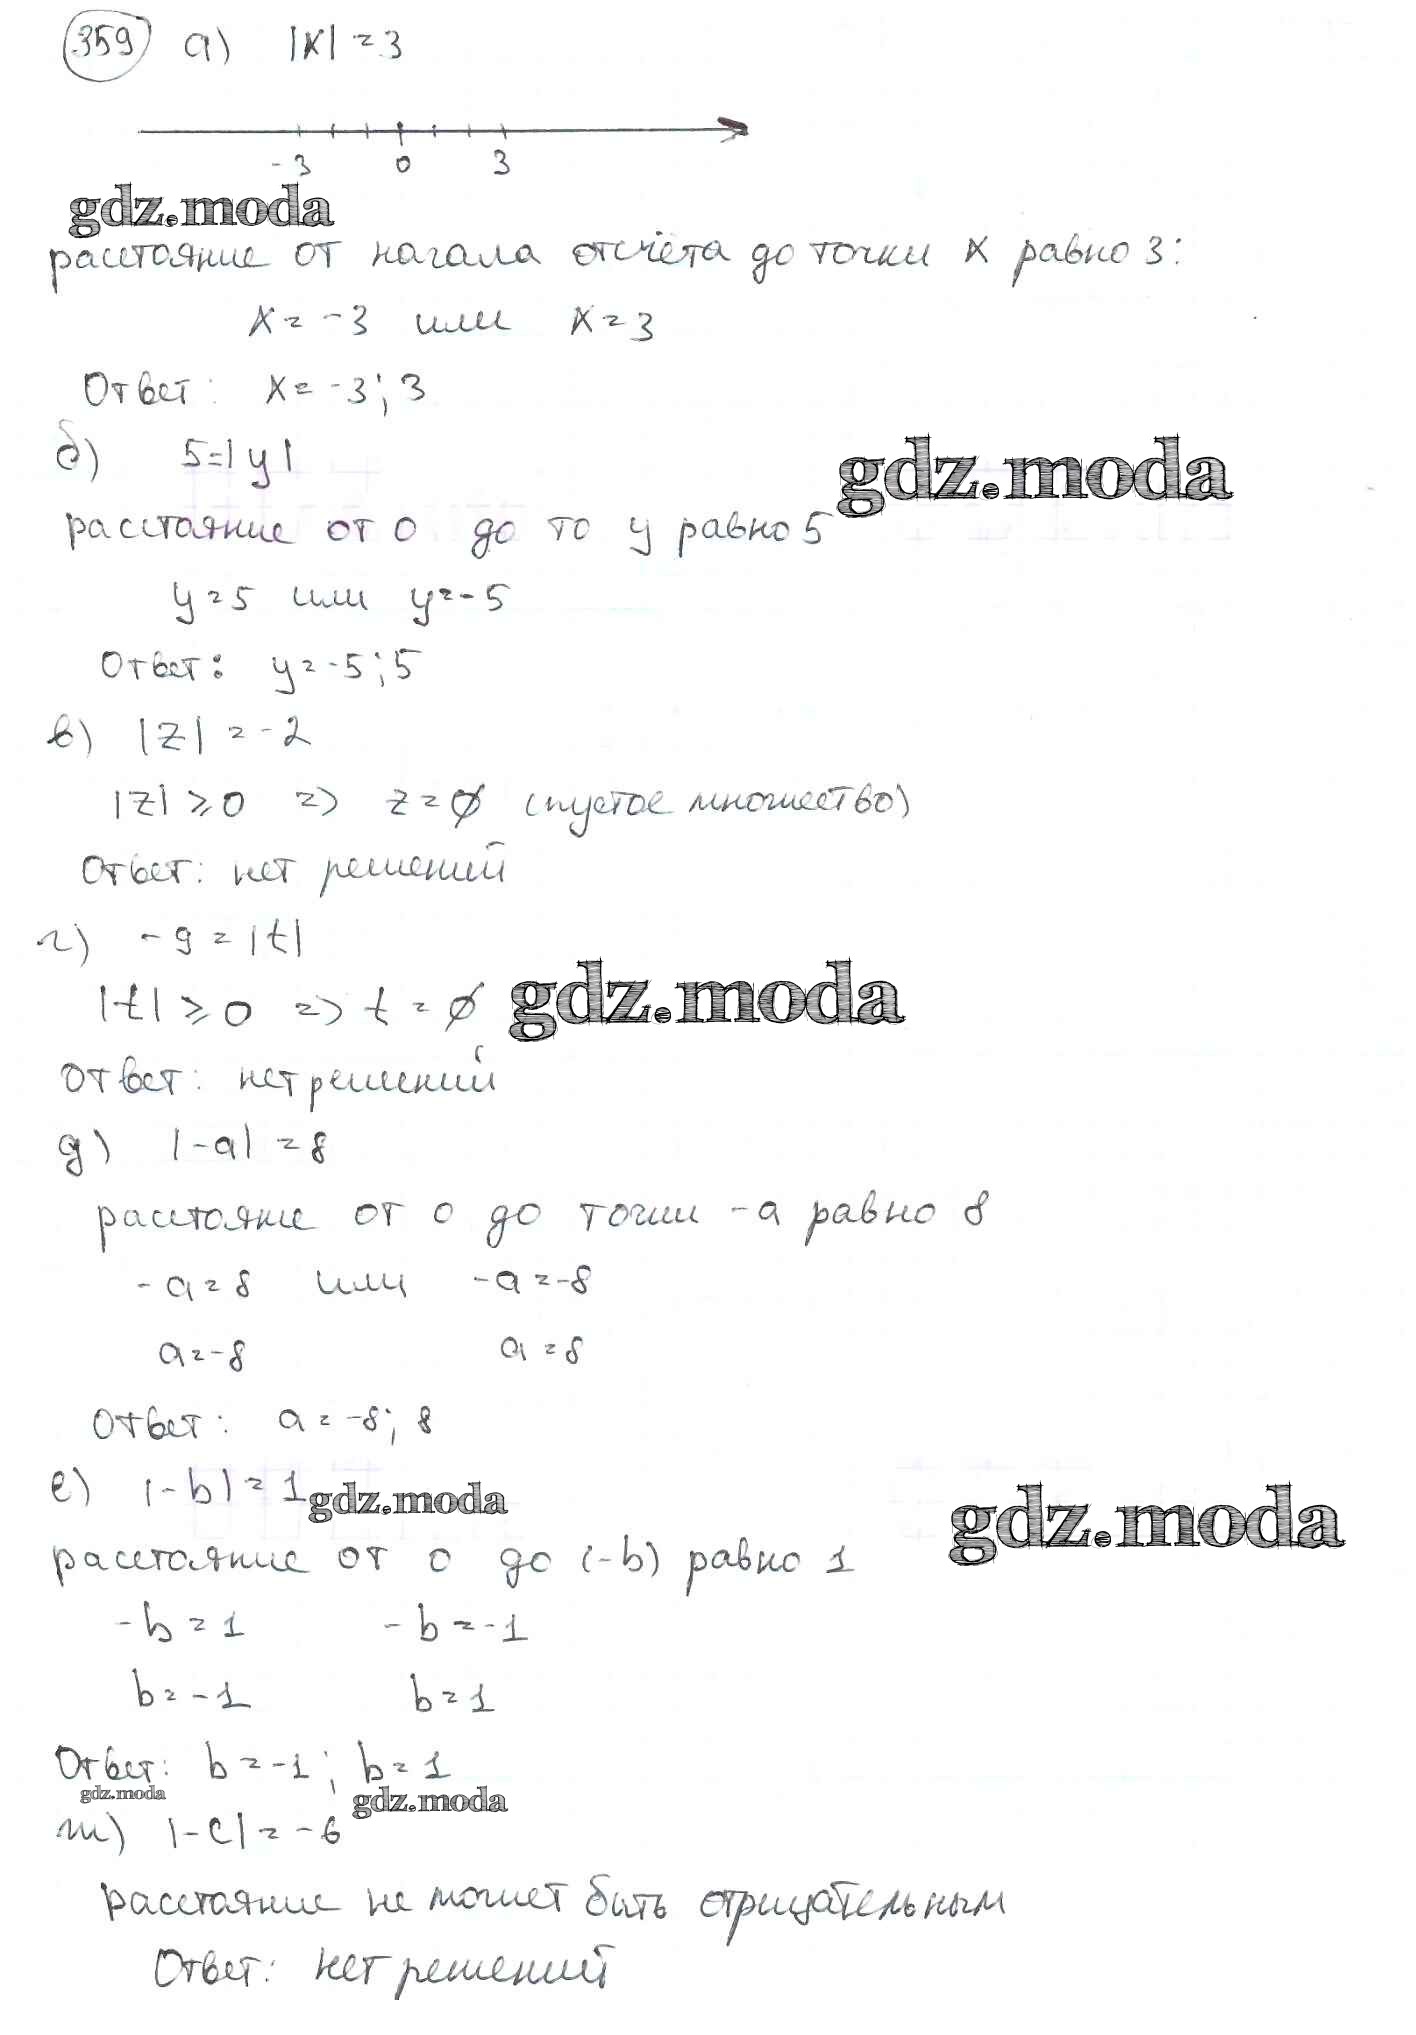 359 а) |x| = 3
-3 0 3
gdz.moda
расстояние от начала отсчёта до точки x равно 3:
x = -3 или x = 3
Ответ: x = -3; 3
б) 5 = |y|
gdz.moda
расстояние от 0 до то y равно 5
y = 5 или y = -5
Ответ: y = -5; 5
в) |z| = -2
|z| ⩾ 0 => z = ∅ (пустое множество)
Ответ: нет решений
г) -9 = |t|
|t| ⩾ 0 => t = ∅ gdz.moda
Ответ: нет решений
д) |-a| = 8
расстояние от 0 до точки -a равно 8
-a = 8 или -a = -8
a = -8 a = 8
Ответ: a = -8; 8
е) |-b| = 1 gdz.moda
gdz.moda
расстояние от 0 до (-b) равно 1
-b = 1 -b = -1
b = -1 b = 1
Ответ: b = -1; b = 1
gdz.moda gdz.moda
ж) |-c| = -6
расстояние не может быть отрицательным
Ответ: нет решений